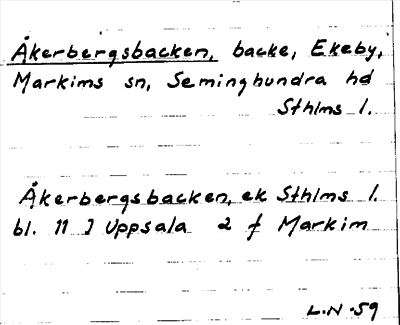 Åkerbergsbacken, backe, Ekeby,
Markims sn, Seminghundra hd
Sthlms l.
Åkerbergsbacken, ek Sthlms l.
bl. 11 J Uppsala 2 f Markim
L.N -59